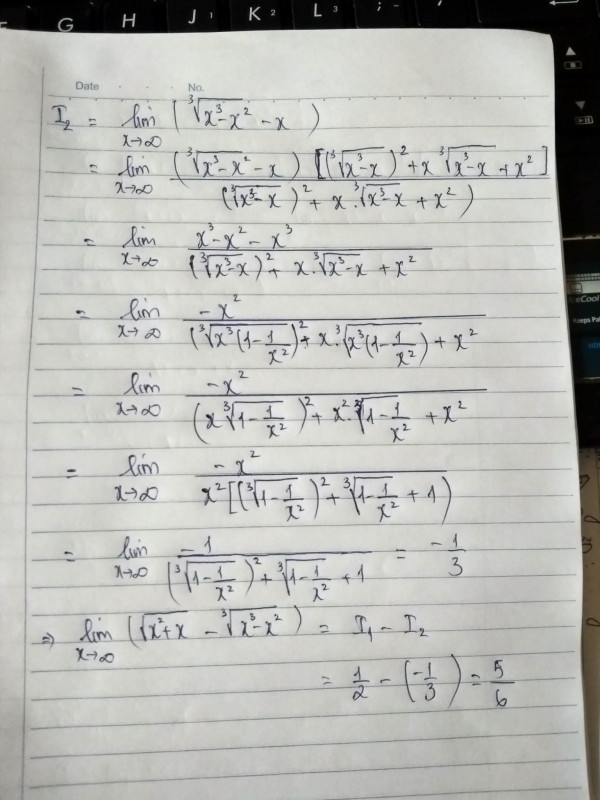 G H J K L ; :
Date No.
I₂ = lim x→∞ (∛(x³-x²) - x)
= lim x→∞ (∛(x³-x²) - x) [(∛(x³-x))² + x ∛(x³-x) + x²] / (∛(x³-x))² + x.∛(x³-x) + x²)
= lim x→∞ x³-x²-x³ / (∛(x³-x))² + x.∛(x³-x) + x²
= lim x→∞ -x² / (∛(x³(1-1/x²)))² + x.∛(x³(1-1/x²)) + x²
= lim x→∞ -x² / (x∛(1-1/x²))² + x².∛(1-1/x²) + x²
= lim x→∞ -x² / x²[(∛(1-1/x²))² + ∛(1-1/x²) + 1)
= lim x→∞ -1 / (∛(1-1/x²))² + ∛(1-1/x²) + 1 = -1/3
⇒ lim x→∞ (√(x²+x) - ∛(x³-x²)) = I₁ - I₂
= 1/2 - (-1/3) = 5/6